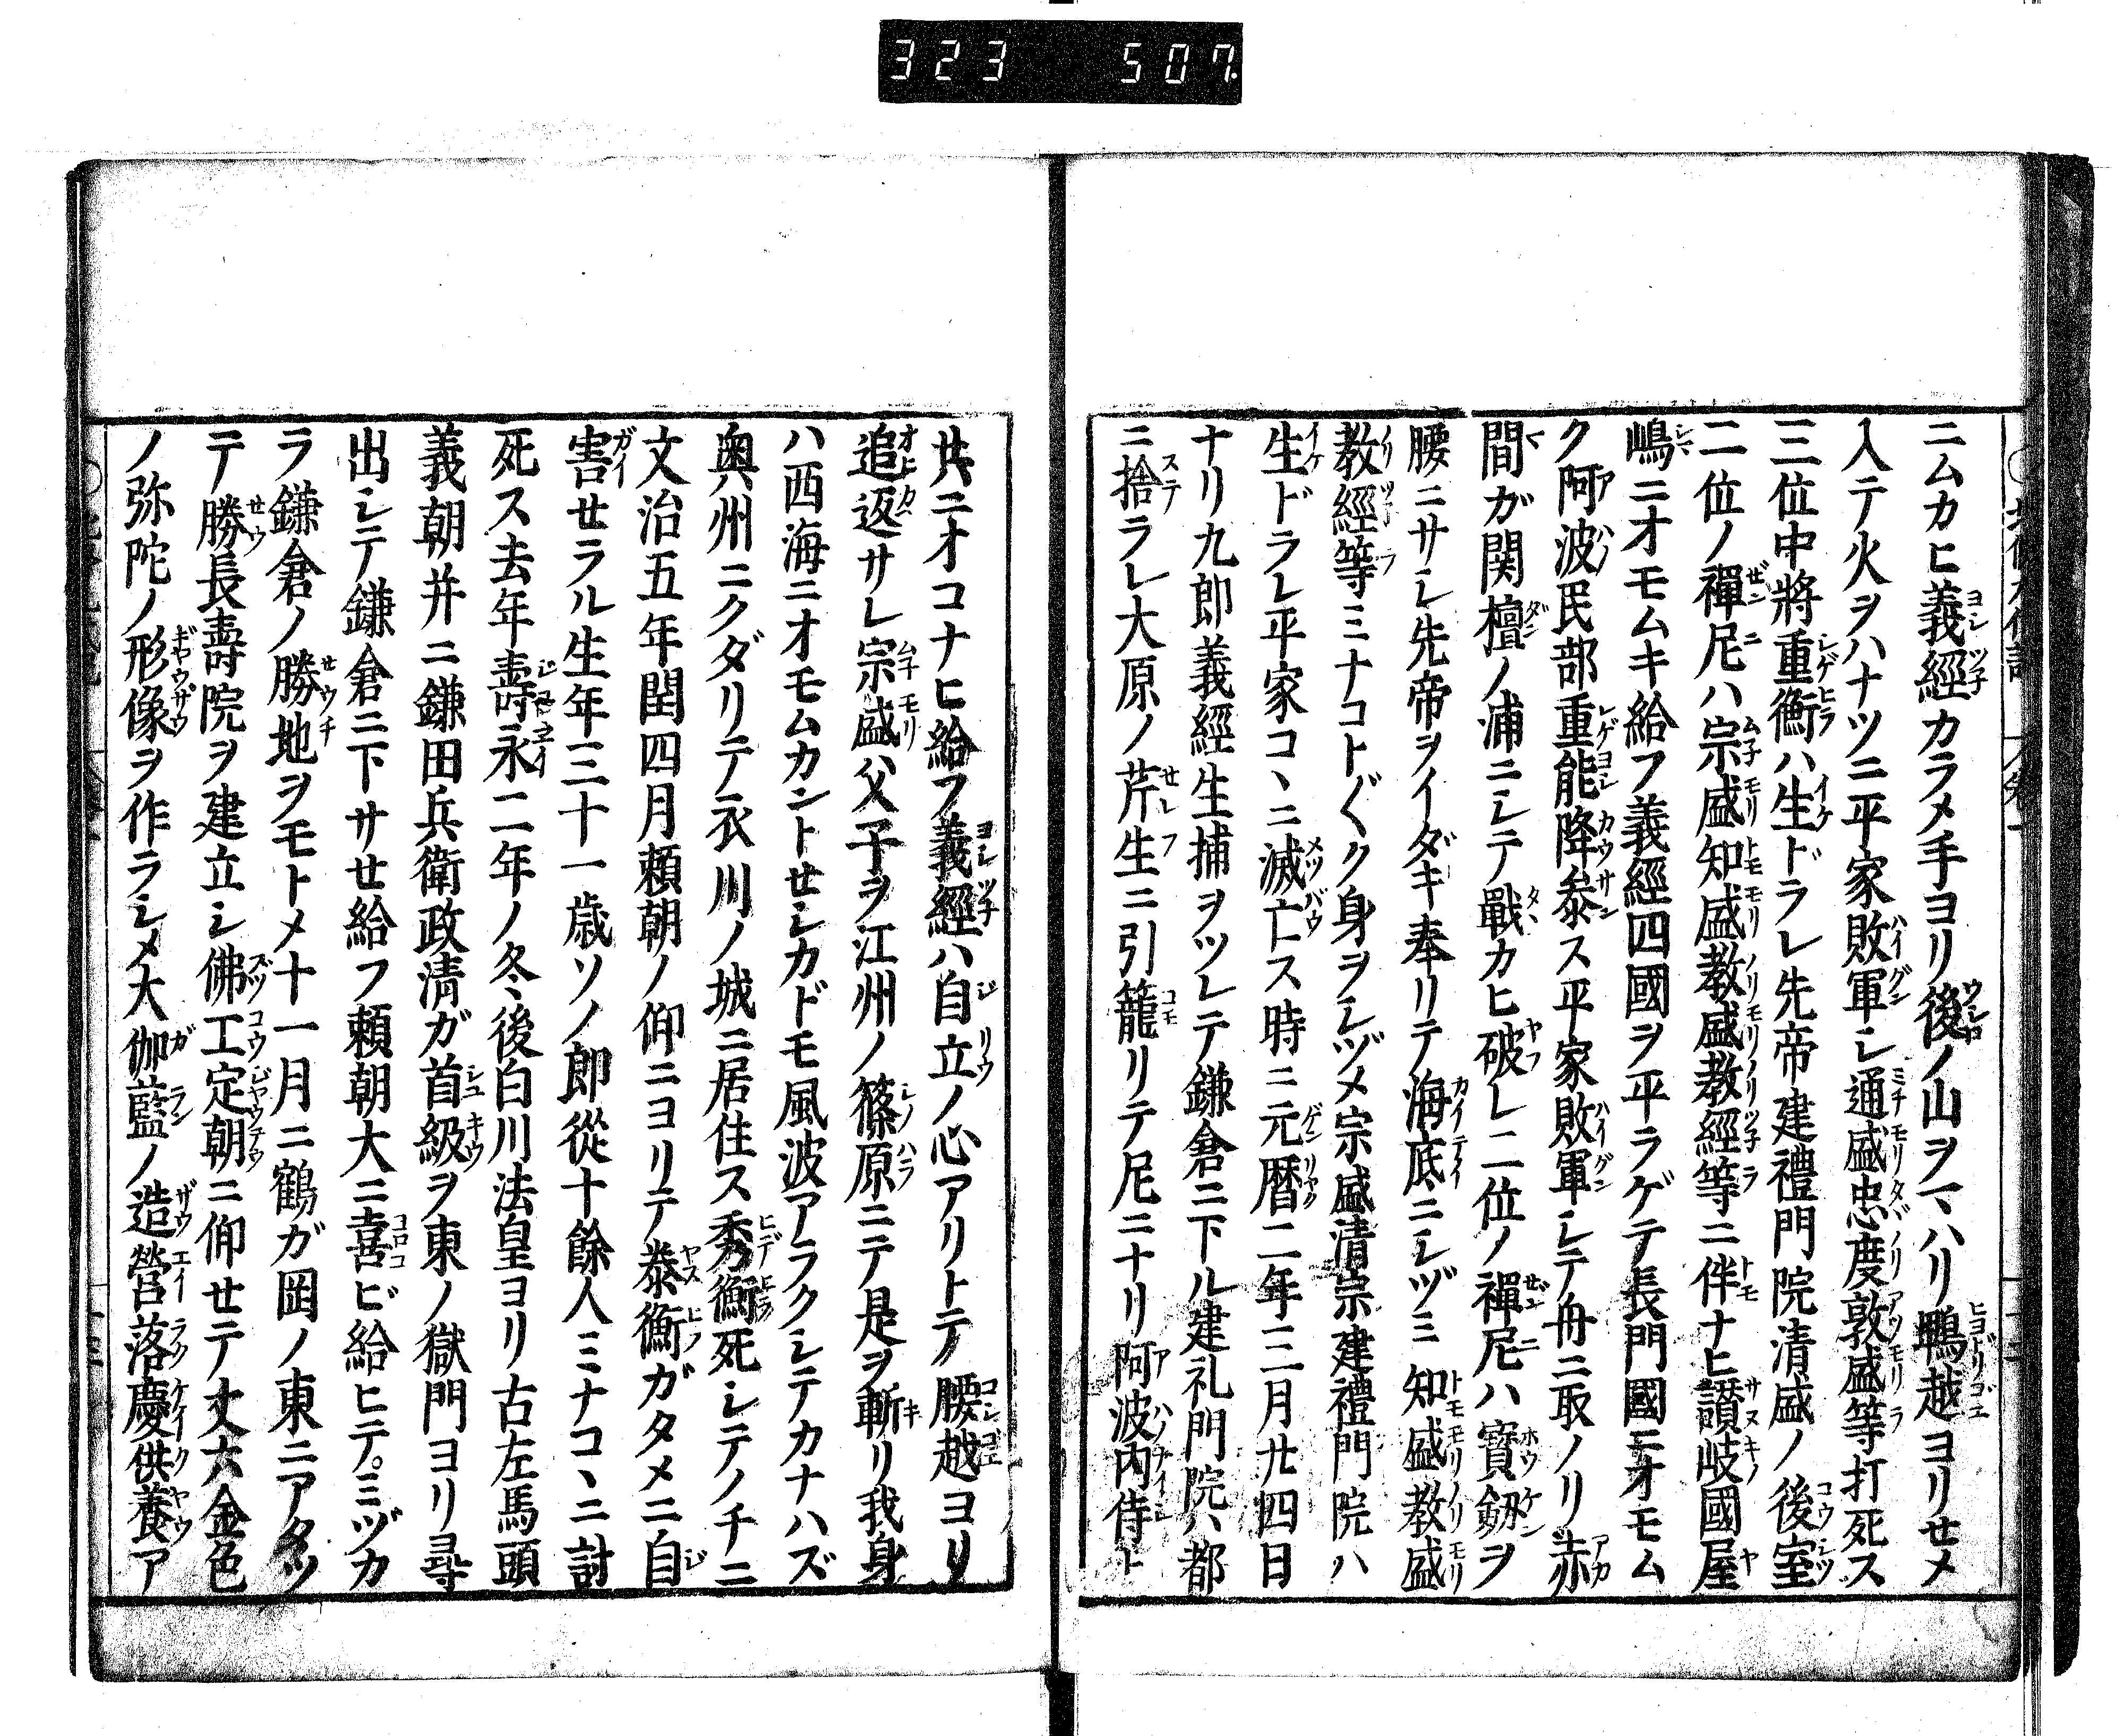 323 507.
ニムカヒ義經カラメ手ヨリ後ノ山ヲマハリ鵯越ヨリせメ
入テ火ヲハナツニ平家敗軍シ通盛忠度敦盛等打死ス
三位中將重衡ハ生ドラレ先帝建禮門院清盛ノ後室
二位ノ禪尼ハ宗盛知盛教盛教經等ニ伴ナヒ讃岐國屋
嶋ニオモムキ給フ義經四國ヲ平ラゲテ長門國ニオモム
ク阿波民部重能降参ス平家敗軍シテ舟ニ取ノリ赤
間ガ関檀ノ浦ニシテ戰カヒ破レ二位ノ禪尼ハ寳劔ヲ
腰ニサシ先帝ヲイダキ奉リテ海底ニシヅミ知盛教盛
教經等ミナコト〴〵ク身ヲシヅメ宗盛清宗建禮門院ハ
生ドラレ平家コヽニ滅亡ス時ニ元暦二年三月廿四日
ナリ九郎義經生捕ヲツレテ鎌倉ニ下ル建礼門院ハ都
ニ捨ラレ大原ノ芹生ニ引籠リテ尼ニナリ阿波内侍ト
共ニオコナヒ給フ義經ハ自立ノ心アリトテ腰越ヨリ
追返サレ宗盛父子ヲ江州ノ篠原ニテ是ヲ斬リ我身
ハ西海ニオモムカントせシカドモ風波アラクシテカナハズ
奥州ニクダリテ衣川ノ城ニ居住ス秀衡死シテノチニ
文治五年閏四月頼朝ノ仰ニヨリテ泰衡ガタメニ自
害せラル生年三十一歳ソノ郎從十餘人ミナコヽニ討
死ス去年壽永二年ノ冬後白川法皇ヨリ古左馬頭
義朝并ニ鎌田兵衛政清ガ首級ヲ東ノ獄門ヨリ尋
出シテ鎌倉ニ下サせ給フ頼朝大ニ喜ビ給ヒテ。ミヅカ
ラ鎌倉ノ勝地ヲモトメ十一月ニ鶴ガ岡ノ東ニアタツ
テ勝長壽院ヲ建立シ佛工定朝ニ仰せテ丈六金色
ノ弥陀ノ形像ヲ作ラシメ大伽藍ノ造營落慶供養ア